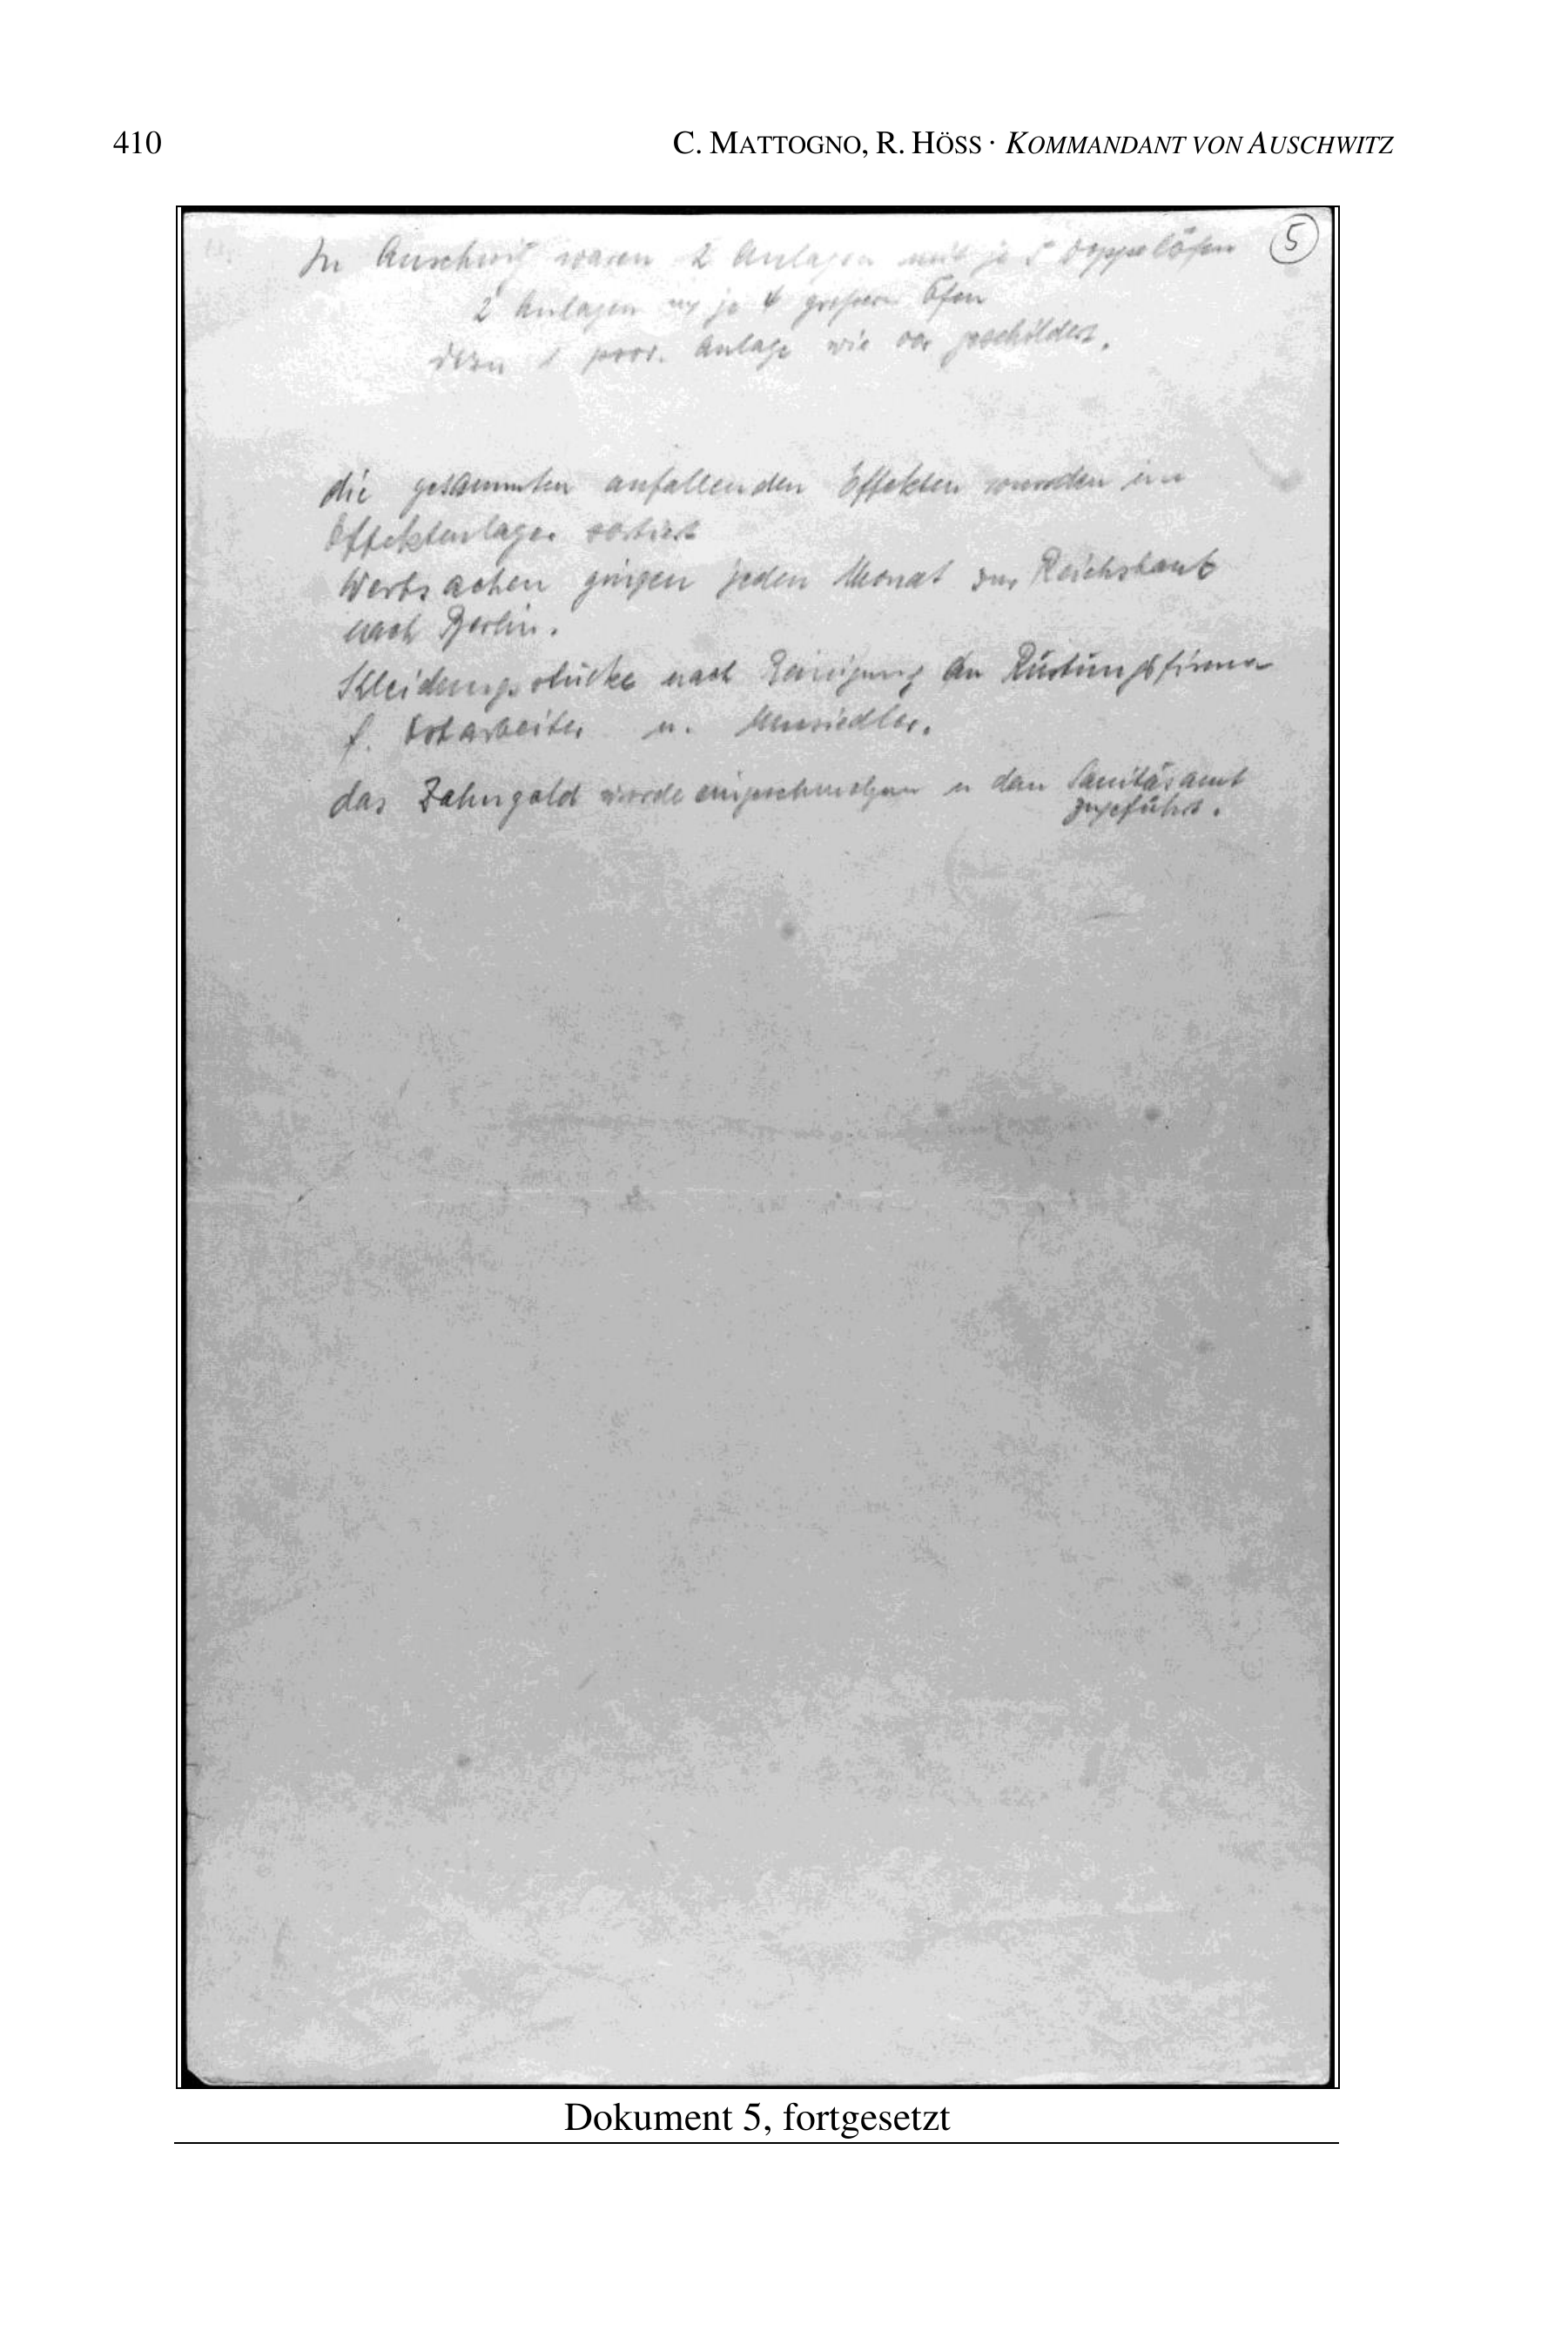 410
C. MATTOGNO, R. HÖSS · KOMMANDANT VON AUSCHWITZ
5
In Auschwitz waren 2 Anlagen mit je 5 Doppelöfen
2 Anlagen mit je 4 größeren Öfen
dazu 1 prov. Anlage wie vor geschildert.
die gesammten anfallenden Effekten wurden im
Effektenlager sortiert
Wertsachen gingen jeden Monat zur Reichsbank
nach Berlin.
Kleidungsstücke nach Reinigung an Rüstungsfirmen
f. Ostarbeiter u. Umsiedler.
das Zahngold wurde eingeschmolzen u dem Sanitäsamt
zugeführt.
Dokument 5, fortgesetzt